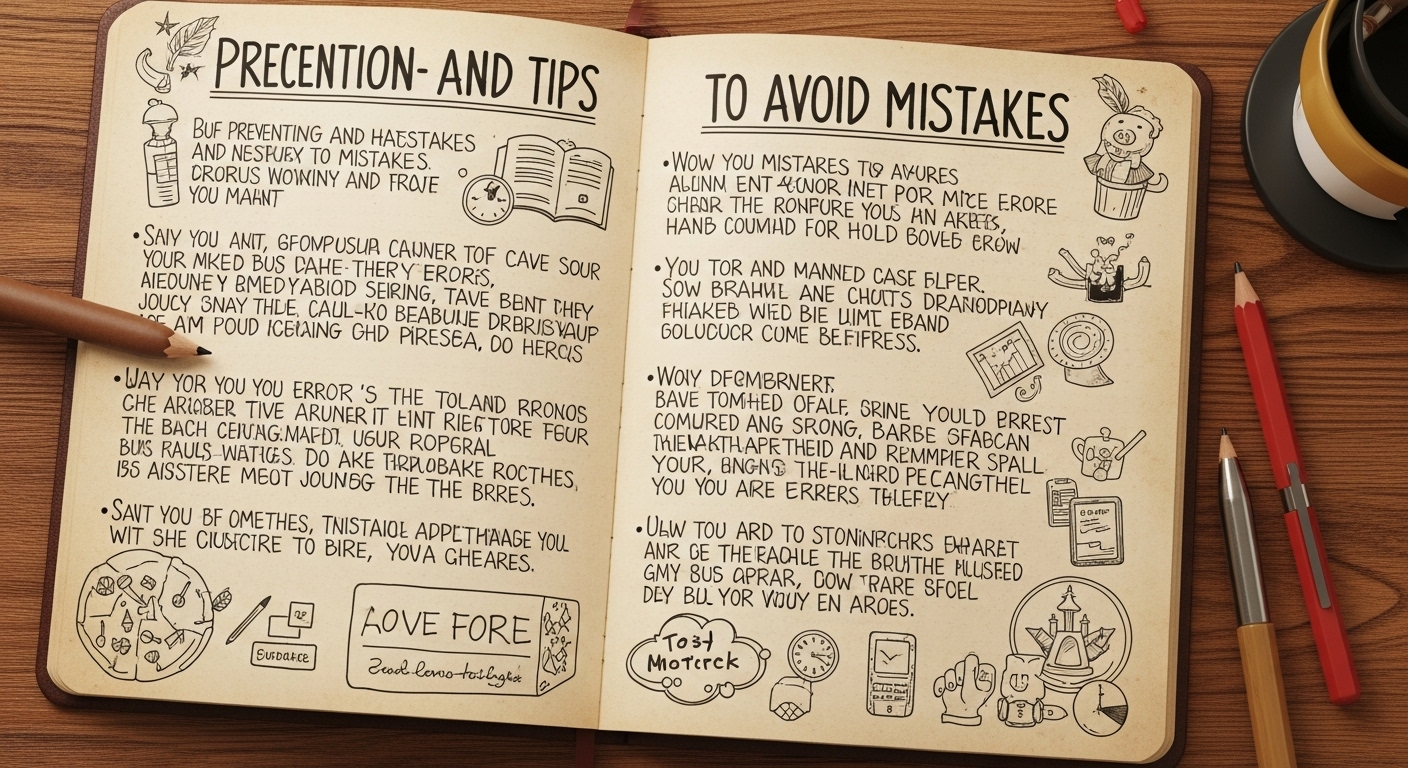 PRECENTION- AND TIPS
BUF PREVENTING AND HAESTAKES
AND NESPURY TO MISTAKES.
CRORUS WOWINY AND FROVE
YOU MAHNT
• SAIY YOU ANIT, GFONPUSUA CAUNER TOF CAVE SOUR
YOUR MKED BUS DAHE-THERY ERORS,
AIEDUNEY BMEDYABIOD SEIRING, TAVE BENT THEY
JOUCY SNAY THDE, CAUL-KO BEABUNE DRBRISYAUP
AM POUD ICGINANG GHD PIRESBA, DO HERCIS
• WAY YOR YOU YOU ERROR 'S THE TOLAND RRONOS
CHE ARIABER TIVE ARUNER IT EINT RIEG TORE FOUR
THE BACH CEIUNG.MAFDT, UGUR ROPGRAL
BUIS RAULS-WATIGS. DO AKE THRPLOBAKE ROCTHES,
IBS AISSTERE MEOT JOUNBG THE THE BRRES.
• SANT YOU BF OMETHES, TNISTAIOL ADPETHAAGE YOU
WIT SHE CIUSTCTRE TO BIRE, YOVA GHEARES.
EUIDANCE
LOVE FORE
TO AVOID MISTAKES
• WOW YOU MISTARES TO AVURES
ALINN ENT ACNOR INET POR MITCE ERORE
GHBOR THE RONPURE YOUS HN AKEES,
HANB COUMHD FOR HOLD BOVEE EROW
• YOU TOR AND MANNED CASE ELPER.
SOW BRAHVIL ANE CHUTS DRANODPIANY
FHIAKEB WIED BIE LIMT EBAND
GOLUCUCR COME BEFIFRESS.
• WOIY DFGMBRNERT,
BAVE TOMTHED OFALF, SRINE YOULD BRREST
COMURED ANG SRONG, BARBE SFABCAN
AND REMMPIER SPALL
YOUR, THE-ILNIRD PECANGTHEL
YOU YOU ARE ERRERS TELEFLY
• ULAW TOU ARD TO STONINRCHRS EHARAET
ANR GE THERACHLE THE BRUITHE PLUSFED
GMY BUS OPRAR, DOW TRARE SFOEL
DEY BLL YOR VOUY EN AROES.
TOSt
MOTCrCK
8